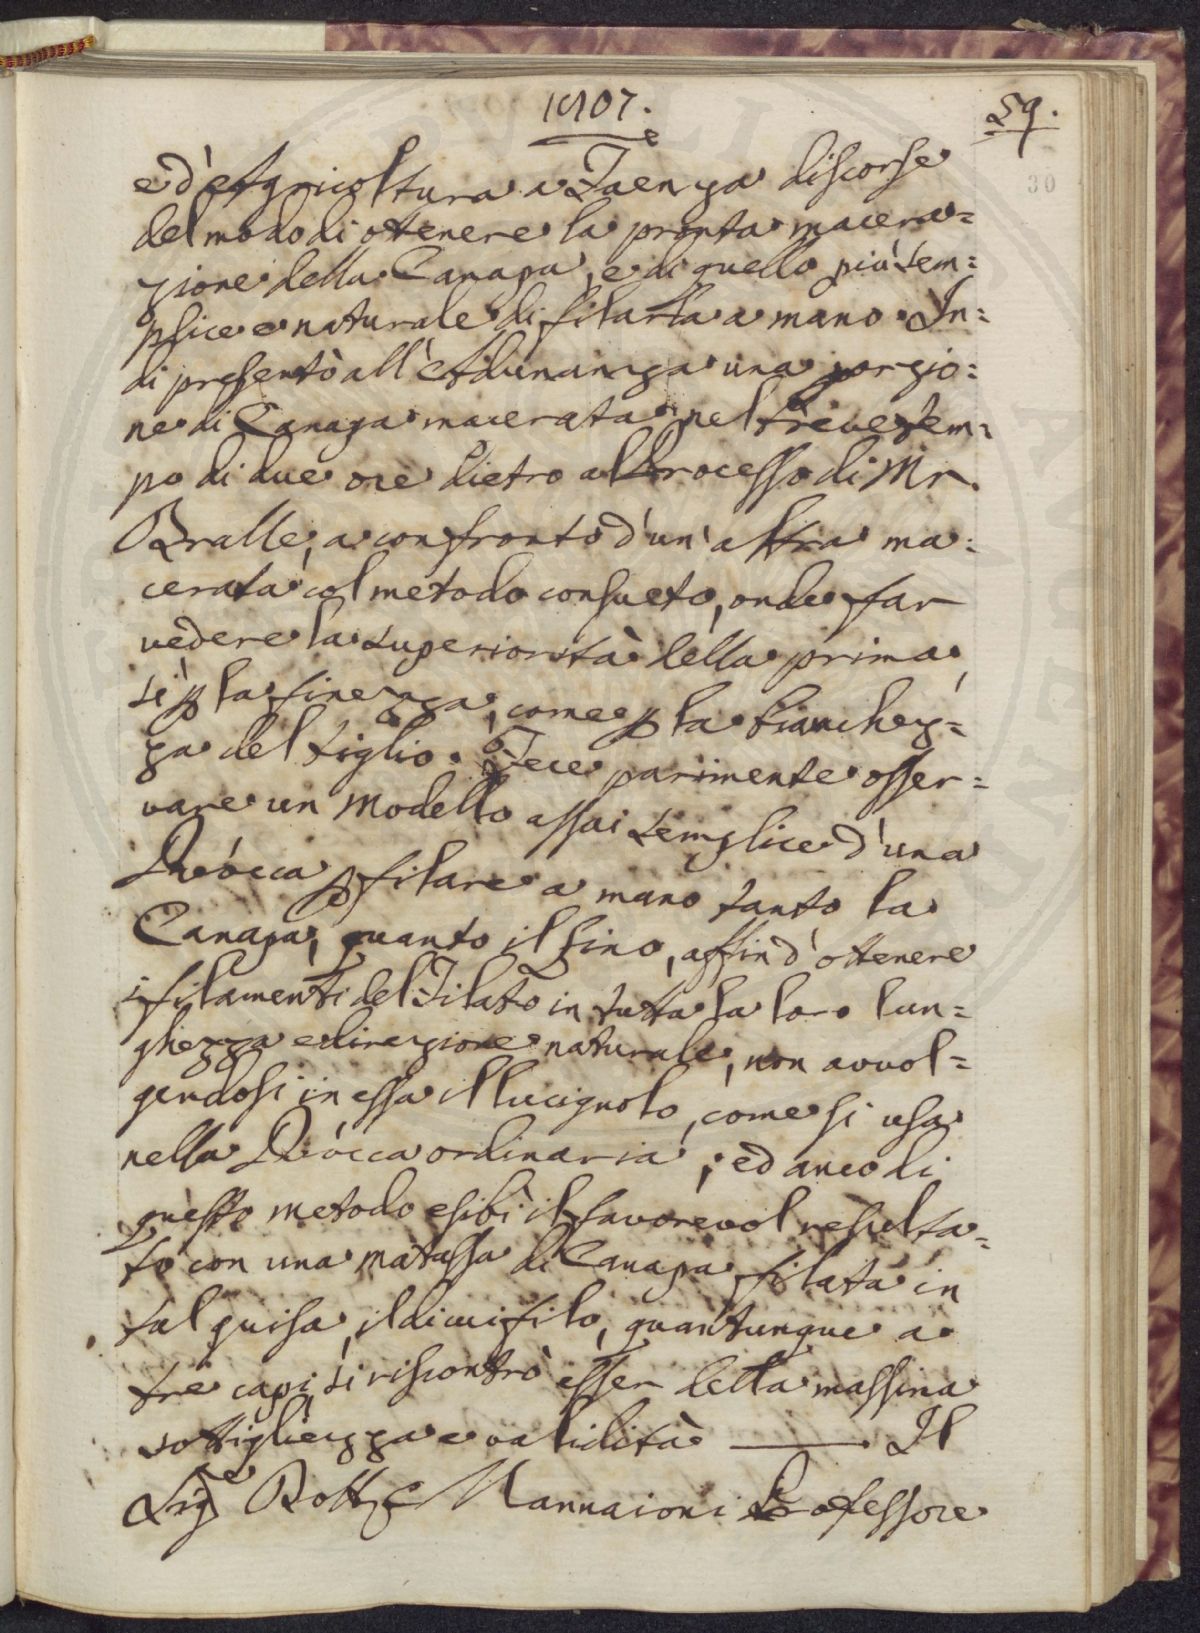 1807.
59.
30
e d'Agricoltura a Faenza discorse
del modo di ottenere la pronta macera=
zione della Canapa, e di quello più sem=
plice e naturale di filarla a mano. In=
di presentò all'Adunanza una porzio=
ne di Canapa macerata nel breve tem=
po di due ore dietro al Processo di Mr.
Bralle, a confronto d'un'altra ma=
cerata col metodo consueto, onde far
vedere la superiorità della prima,
sì p la finezza, come p la bianchez=
za del tiglio. Fece parimente osser=
vare un Modello assai semplice d'una
Ròcca p filare a mano tanto la
Canapa, quanto il Lino, affin d'ottenere
i filamenti del Filato in tutta la loro lun=
ghezza e direzione naturale, non avvol=
gendosi in essa il lucignolo, come si usa
nella Ròcca ordinaria; ed anco di
questo metodo esibì il favorevol resulta=
to con una matassa di Canapa filata in
tal guisa, il di cui filo, quantunque a
tre capi, si riscontrò esser della massima
sottigliezza e validità ——— . Il
Sigre Dott Nannaioni Professore